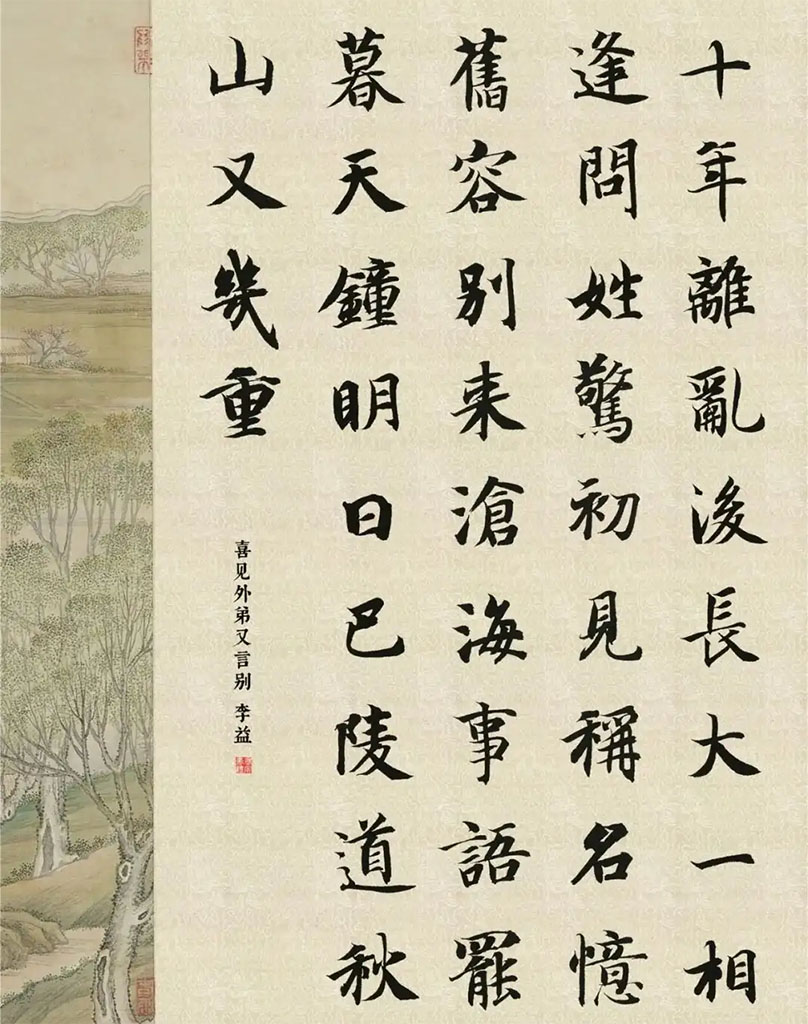 十年離亂後長大一相
逢問姓驚初見稱名憶
舊容别来滄海事語罷
暮天鐘明日巴陵道秋
山又幾重
喜见外弟又言别 李益